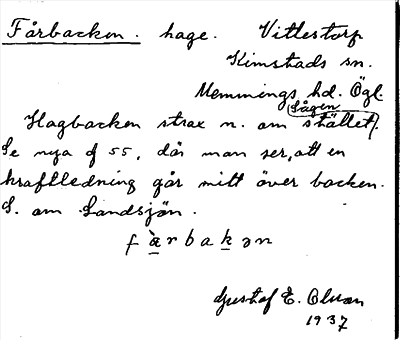 Fårbacken. hage. Vittestorp
Kimstads sn.
Memmings hd. Ögl.
Hagbacken strax n. om (Sågen) stället.
Se nya gf 55, där man ser, att en
kraftledning går mitt över backen.
S. om Landsjön.
f à r b a k ə n
Gustaf E. Olsson
1937